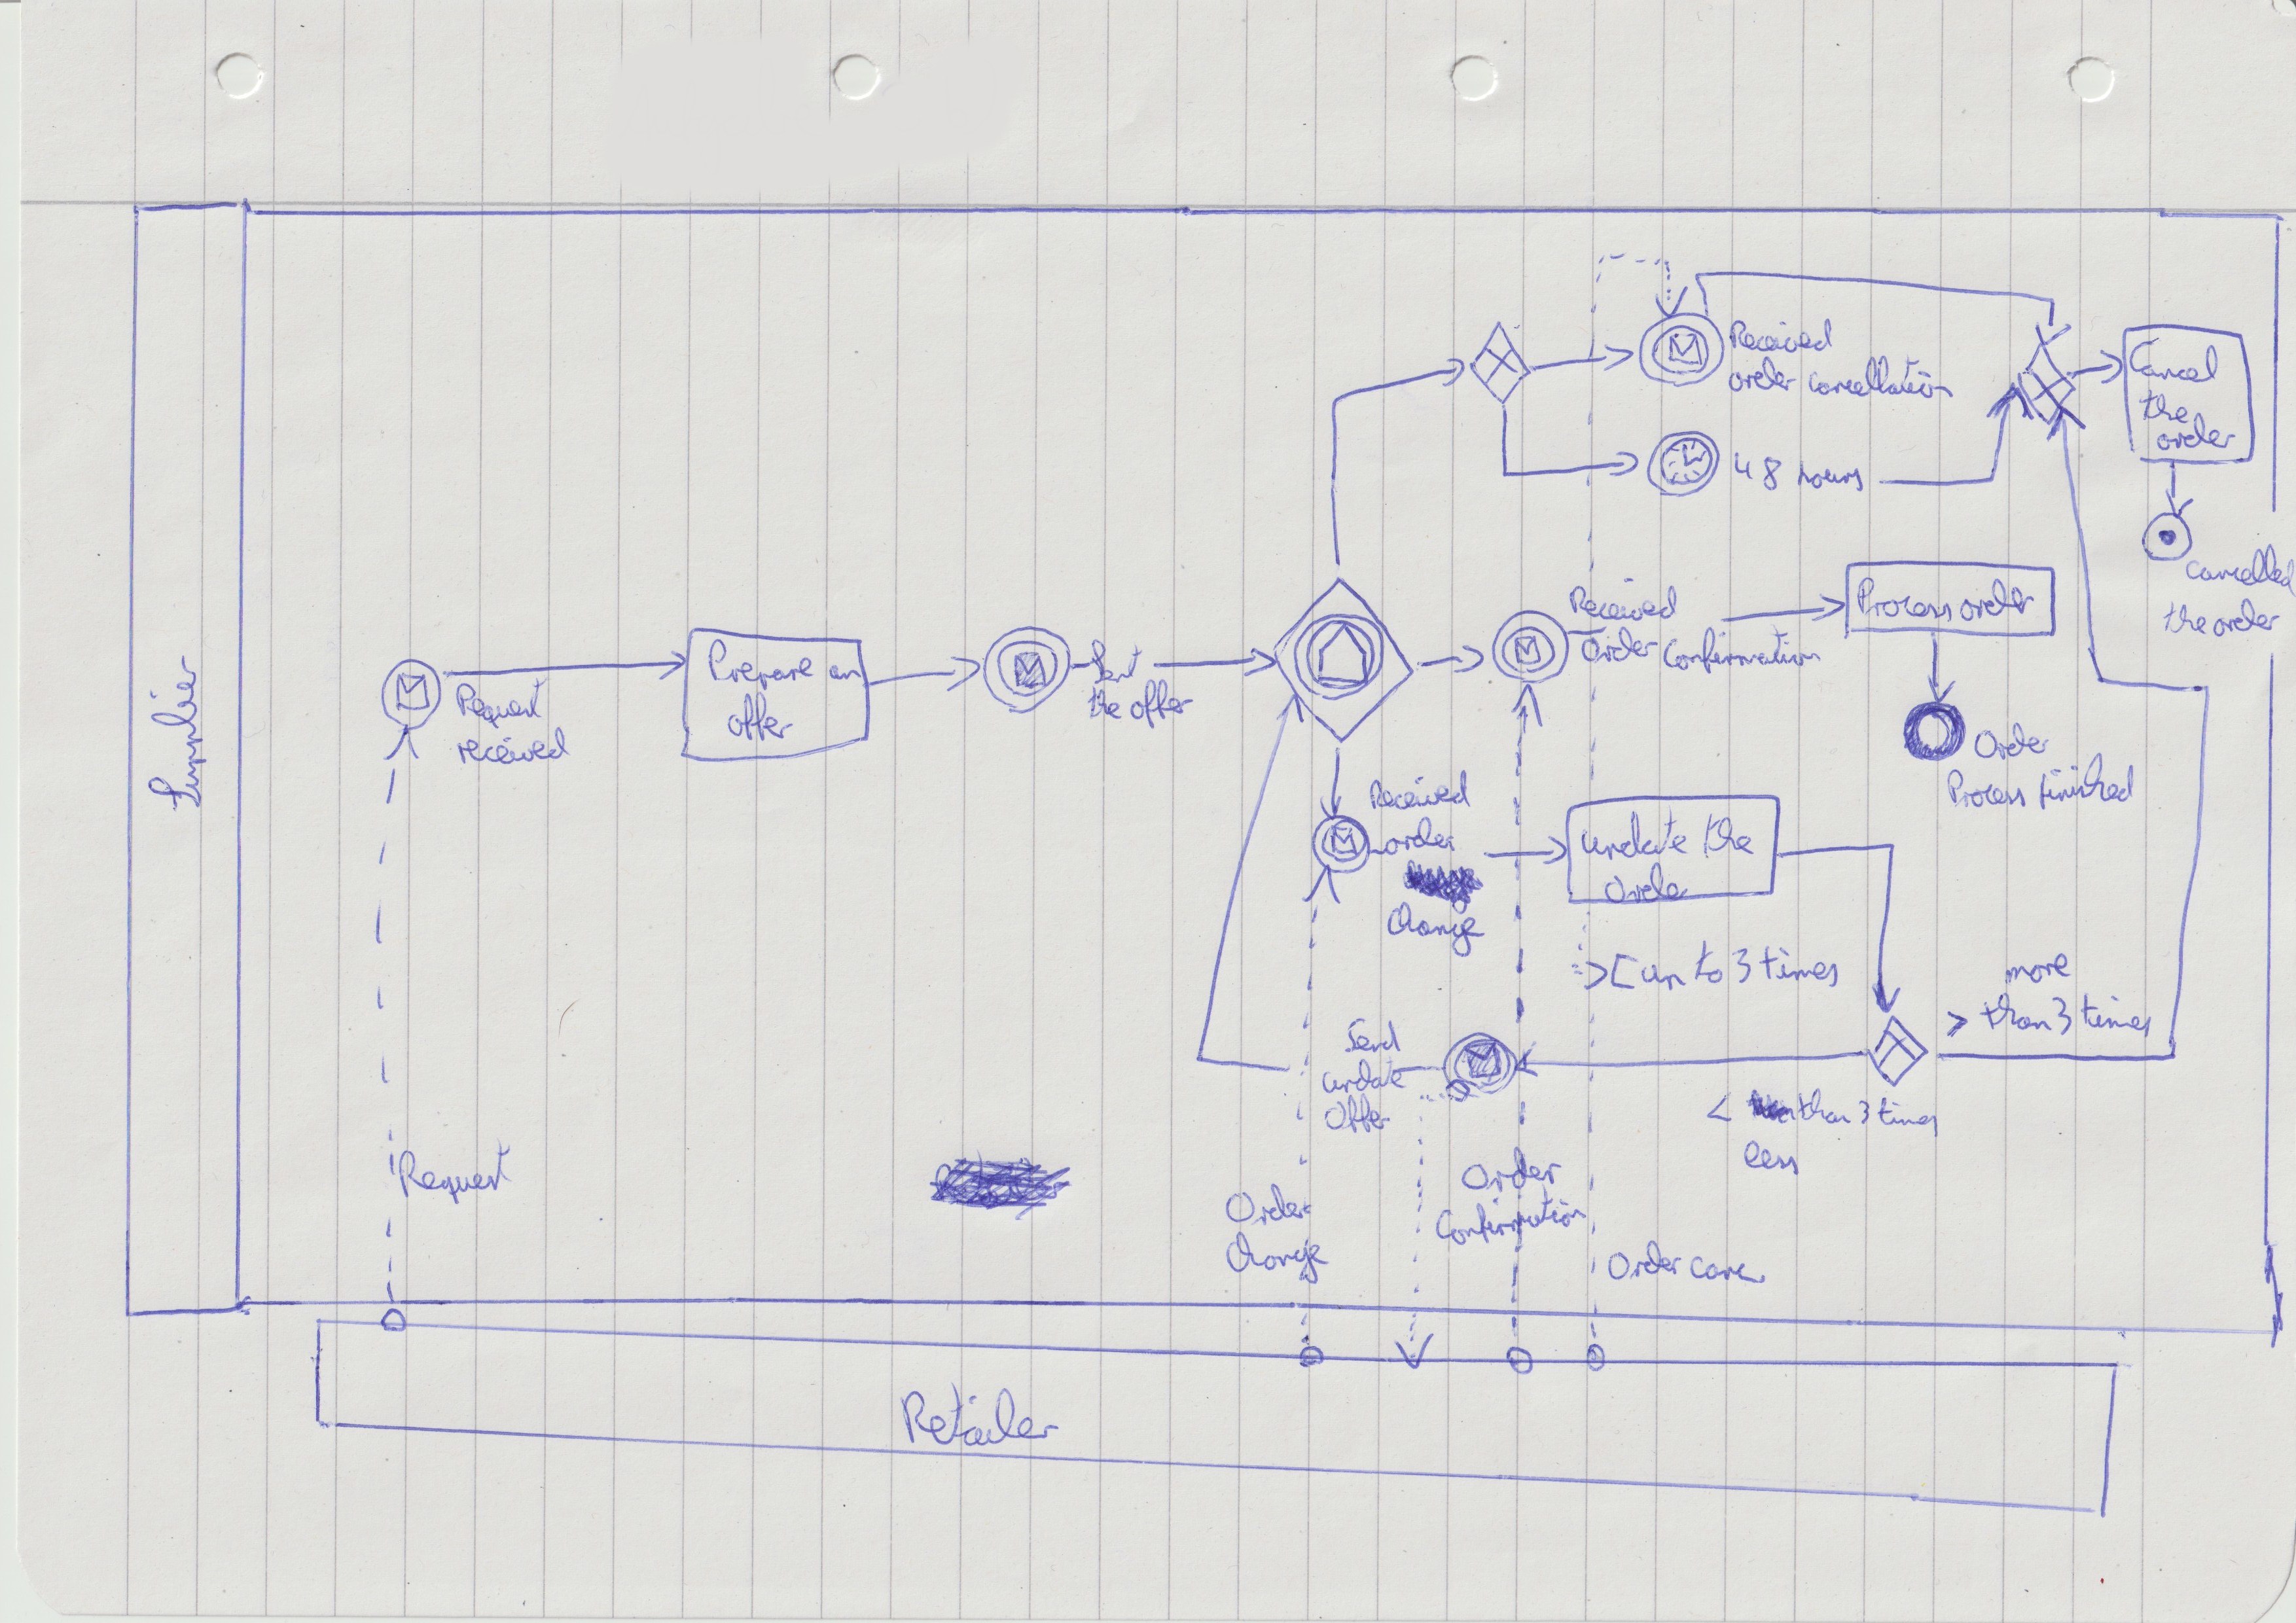 Supplier
Request
received
Prepare an
offer
Sent
the offer
Received
order cancellation
48 hours
Cancel
the
order
Cancelled
the order
Received
Order Confirmation
Process order
Order
Process finished
Received
order
Change
update the
Order
up to 3 times
more
> than 3 times
< than 3 times
less
Send
update
Offer
Request
Order
Change
Order
Confirmation
Order canc
Retailer